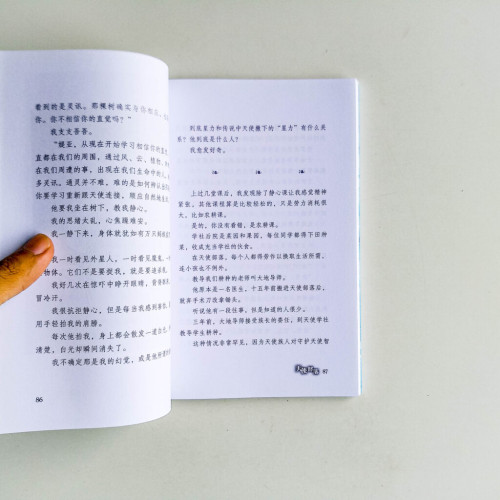 看到的是灵讯。那棵树确实与你
你。你不相信你的直觉吗？”
我支支吾吾。
“媞亚，从现在开始学习相信你的直
直都在我们的周围，通过风、云、植物、
在我们周遭的事，出现在我们生命中的人
多灵讯。通灵并不难，难的是如何辨认出
你要学习重新跟天使连接，顺应自然
他要我坐在树下，教我静心。
我的思绪太乱，心焦躁难安。
我一静下来，身体就犹如有万只蚂
我一时看见外星人，一时看见魔鬼，一
物体。它们不是要捉我，就是要追杀我。
我好几次在惊吓中睁开眼睛，背脊
冒冷汗。
我很抗拒静心，但是每当我感到
用手轻拍我的肩膀。
每次他拍我，身上都会散发一道
清楚，白光却瞬间消失了。
我不确定那是我的幻觉，或是他
86
到底星力和传说中天使撒下的“星力”有什么关
系？他到底是什么人？
我愈发好奇。
上过几堂课后，我发现除了静心课让我感觉精神
紧张，其他课程算是比较轻松的，只是劳力消耗很
大，比如农耕课。
是的，你没有看错，是农耕课。
学社后院是菜园和果园，每位同学都得下田种
菜，收成充当学社的伙食。
在天使部落，每个人都得劳作以换取生活所需，
连小孩也不例外。
教导我们耕种的老师叫大地导师。
他原本是一名医生，十五年前搬进天使部落后，
就弃手术刀改拿锄头。
听说他有一段往事，但是知道的人很少。
三年前，大地导师接受族长的委任，到天使学社
教导学生耕种。
这种情况非常罕见，因为天使族人对守护天使智
87